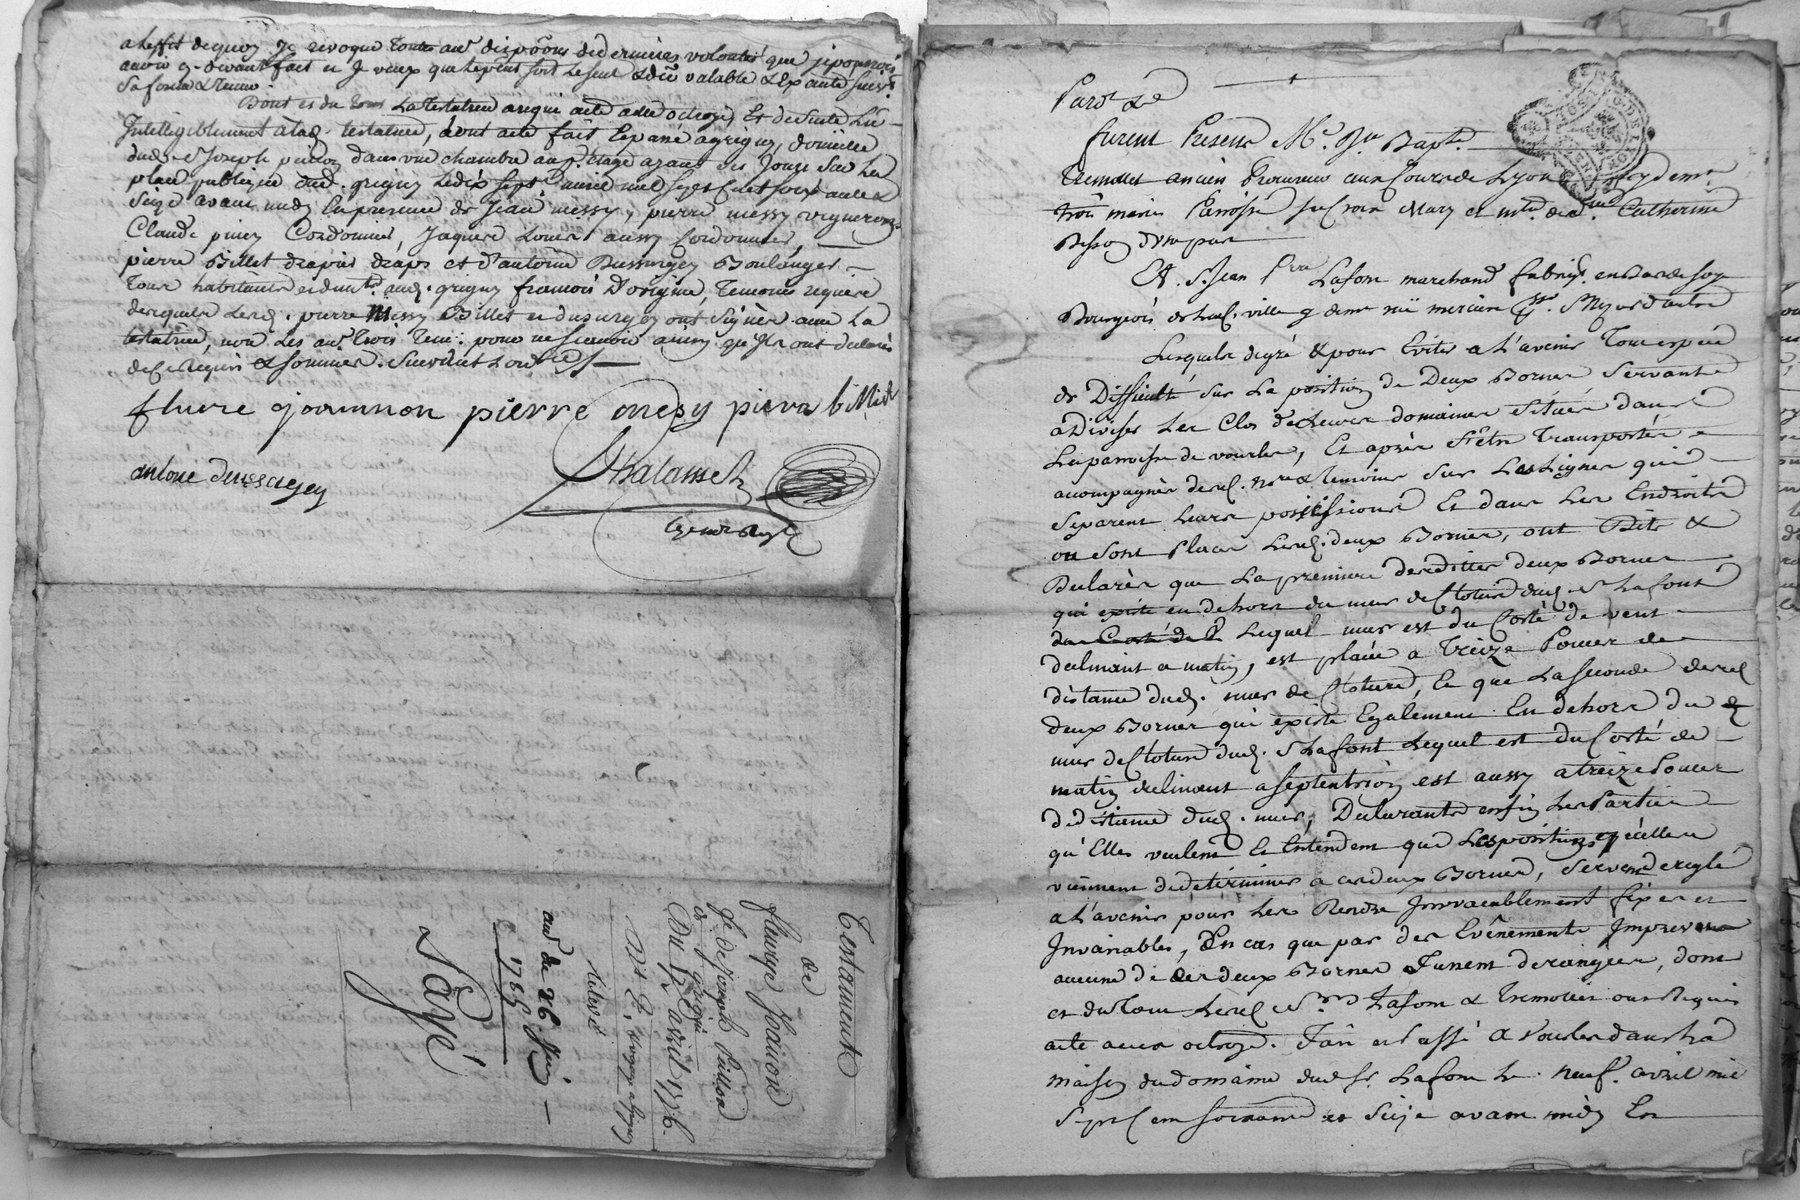 a leffet dequoy je revoque toutes autres dispoõns dedernieres volontés que je pourrois
avoir cy-devant fait et je veux que le pnt soit le seul valable & exécuté suivt
sa forme & teneur
Dont et du tout la testatrice a requi acte a elle octroyé, et de suite lu
Intelligiblement à lad. testatrice, dont acte fait et passé a grigny, domicille
dud. Sr Joseph pition dans une chambre au p.er étage ayant ses jours sur la
place publique dud. grigny le dix sept avril mil sept cent soixante &
seize avant midy En presence de Jean messy, pierre messy vignerons
Claude piney Cordonnier, Jaques Louis aussy cordonnier,
pierre Billet drapier drapt et d'antoine Dussurgey Boulanger
tous habitants aud. grigny françois d'origine, temoins requis
desquels lesd. pierre Messy Billet et dussurgey ont signés avec la
testatrice, non les autres trois tem. pour ne scavoir ainsy qu'ils ont declarés
de ce requis & sommés suivant l'ordce
flurie jouannon pierre mesy pierre biliet
antoine dussurgey
Thalamet
Testament
de
fleurye Jouannon
fe. de Joseph Pition
de grigny
Du 17e avril 1776.
Relevé
au de 26
1785
Payé
Pard. &e
furent Presens Me. Jn Baptte
Tremollet ancien Procureur aux Cours de Lyon y demt
Paroisse ste Croix Mary et mtre de de. Catherine
Besson d'une part
Et Sr. Jean Pre Lafont marchand fabriqt. en Bas de soye
Bourgeois de lad. ville y demt rüe merciere Psse. St Nizier d'autre
Lesquels de gré & pour Eviter a l'avenir Tout espece
de Difficulté sur la position de Deux Bornes Servante
a Diviser les Clos de leurs domaines situés dans
la parroisse de vourles, Et après s'être Transportés
accompagnés desd. nores & temoins sur les lignes qui
separent leurs possessions Et dans les Endroits
ou sont placés lesd. deux Bornes, ont Dits &
Declarés que la premiere desdittes deux Bornes
qui existe en dehors du mur de Cloture dud. Sr Lafont
du Costé de lequel mur est du Costé de vent
declinant a matin, est placée a treize Pouces de
distance dud. mur de Cloture, Et que la seconde desd.
deux Bornes qui existe Egalement En dehors du d.
mur de Cloture dud. Sr Lafont lequel est du Costé de
matin declinant a septentrion est aussy a treize Pouces
de distance dud. mur, Declarants enfin les Parties
qu'Elles veulent Et Entendent que les positions qu'elles
viennent de determiner a ces deux Bornes, servent de regle
a l'avenir pour les Rendre Irrevocablement fixes et
Invariables, En cas que par des Evênements Imprevus
aucune de ces deux Bornes fussent derangées, dont
et du tout lesd. Srs Lafont & Tremollet ont Requis
acte a eux octroyé. Fait et Passé a Vourles dans la
maison du domaine dud. Sr. Lafont le neuf avril mil
sept cent soixante et seize avant midy En